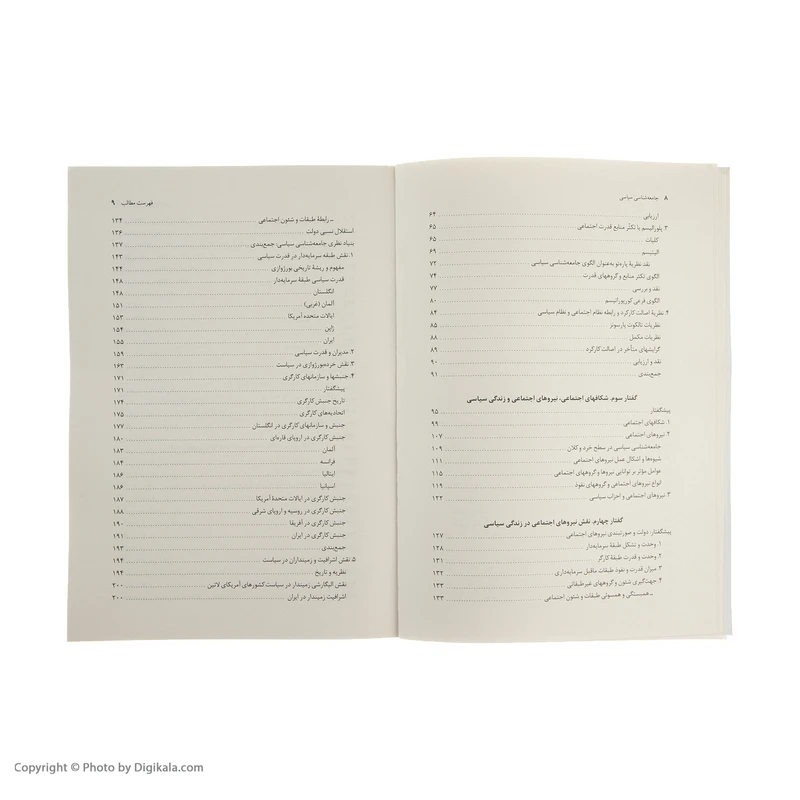 ۸ جامعه‌شناسی سیاسی
ارزیابی ۶۴
۳. پلورالیسم یا تکثّر منابع قدرت اجتماعی ۶۵
کلیات ۶۵
الیتیسم ۶۹
نقد نظریهٔ پاره‌تو به‌عنوان الگوی جامعه‌شناسی سیاسی ۷۳
الگوی تکثر منابع و گروههای قدرت ۷۴
نقد و بررسی ۷۷
الگوی فرعی کورپوراتیسم ۸۰
۴. نظریهٔ اصالت کارکرد و رابطه نظام اجتماعی و نظام سیاسی ۸۴
نظریات تالکوت پارسونز ۸۵
نظریات مکمل ۸۸
گرایشهای متأخر در اصالت کارکرد ۸۹
نقد و ارزیابی ۹۰
جمع‌بندی ۹۱
گفتار سوم. شکافهای اجتماعی، نیروهای اجتماعی و زندگی سیاسی
پیشگفتار ۹۵
۱. شکافهای اجتماعی ۹۹
۲. نیروهای اجتماعی ۱۰۷
جامعه‌شناسی سیاسی در سطح خرد و کلان ۱۰۹
شیوه‌ها و اشکال عمل نیروهای اجتماعی ۱۱۱
عوامل مؤثر بر توانایی نیروها و گروههای اجتماعی ۱۱۵
انواع نیروهای اجتماعی و گروههای نفوذ ۱۱۹
۳. نیروهای اجتماعی و احزاب سیاسی ۱۲۲
گفتار چهارم. نقش نیروهای اجتماعی در زندگی سیاسی
پیشگفتار: دولت و صورتبندی نیروهای اجتماعی ۱۲۷
۱. وحدت و تشکل طبقهٔ سرمایه‌دار ۱۲۸
۲. وحدت و قدرت طبقهٔ کارگر ۱۳۱
۳. میزان قدرت و نفوذ طبقات ماقبل سرمایه‌داری ۱۳۲
۴. جهت‌گیری شئون و گروههای غیرطبقاتی ۱۳۳
ـ همبستگی و همسوئی طبقات و شئون اجتماعی ۱۳۳
فهرست مطالب ۹
ـ رابطهٔ طبقات و شئون اجتماعی ۱۳۴
استقلال نسبی دولت ۱۳۶
بنیاد نظری جامعه‌شناسی سیاسی: جمع‌بندی ۱۳۷
۱. نقش طبقه سرمایه‌دار در قدرت سیاسی ۱۴۳
مفهوم و ریشهٔ تاریخی بورژوازی ۱۴۴
قدرت سیاسی طبقهٔ سرمایه‌دار ۱۴۸
انگلستان ۱۴۸
آلمان (غربی) ۱۵۱
ایالات متحده آمریکا ۱۵۳
ژاپن ۱۵۴
ایران ۱۵۵
۲. مدیران و قدرت سیاسی ۱۵۹
۳. نقش خرده‌بورژوازی در سیاست ۱۶۳
۴. جنبشها و سازمانهای کارگری ۱۷۱
پیشگفتار ۱۷۱
تاریخ جنبش کارگری ۱۷۴
اتحادیه‌های کارگری ۱۷۵
جنبش و سازمانهای کارگری در انگلستان ۱۷۷
جنبش کارگری در اروپای قاره‌ای ۱۸۰
آلمان ۱۸۳
فرانسه ۱۸۴
ایتالیا ۱۸۶
اسپانیا ۱۸۶
جنبش کارگری در ایالات متحدهٔ آمریکا ۱۸۷
جنبش کارگری در روسیه و اروپای شرقی ۱۸۸
جنبش کارگری در آفریقا ۱۹۰
جنبش کارگری در ایران ۱۹۱
جمع‌بندی ۱۹۳
۵. نقش اشرافیت و زمینداران در سیاست ۱۹۴
نظریه و تاریخ ۱۹۴
نقش الیگارشی زمیندار در سیاست کشورهای آمریکای لاتین ۲۰۰
اشرافیت زمیندار در ایران ۲۰۰
Copyright © Photo by Digikala.com